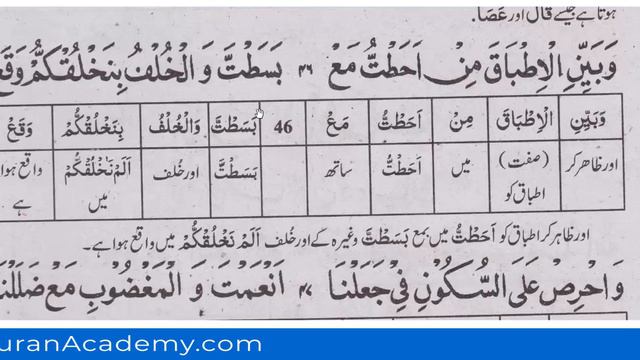 ہوتا ہے جیسے قَالَ اور عَصَا.
وَبَيِّنِ الْاِطْبَاقَ مِنْ اَحَطْتُّ مَعْ ٤٦ بَسَطْتَّ وَ الْخُلْفُ بِنَخْلُقْكُّمْ وَقَعْ
وَبَيِّنِ الْاِطْبَاقَ مِنْ اَحَطْتُّ مَعْ 46 بَسَطْتَّ وَالْخُلْفُ بِنَخْلُقْكُّمْ وَقَعْ
اور ظاہر کر (صفت) اطباق کو میں اَحَطْتُّ ساتھ بَسَطْتَّ اور خلف اَلَمْ نَخْلُقْكُّمْ میں واقع ہوا ہے
اور ظاہر کر اطباق کو اَحَطْتُّ میں بمع بَسَطْتَّ وغیرہ کے اور خلف اَلَمْ نَخْلُقْكُّمْ میں واقع ہوا ہے۔
وَ احْرِصْ عَلَى السُّكُوْنِ فِيْ جَعَلْنَا ٤٧ اَنْعَمْتَ وَ الْمَغْضُوْبِ مَعْ ضَلَلْنَا
uranAcademy.com